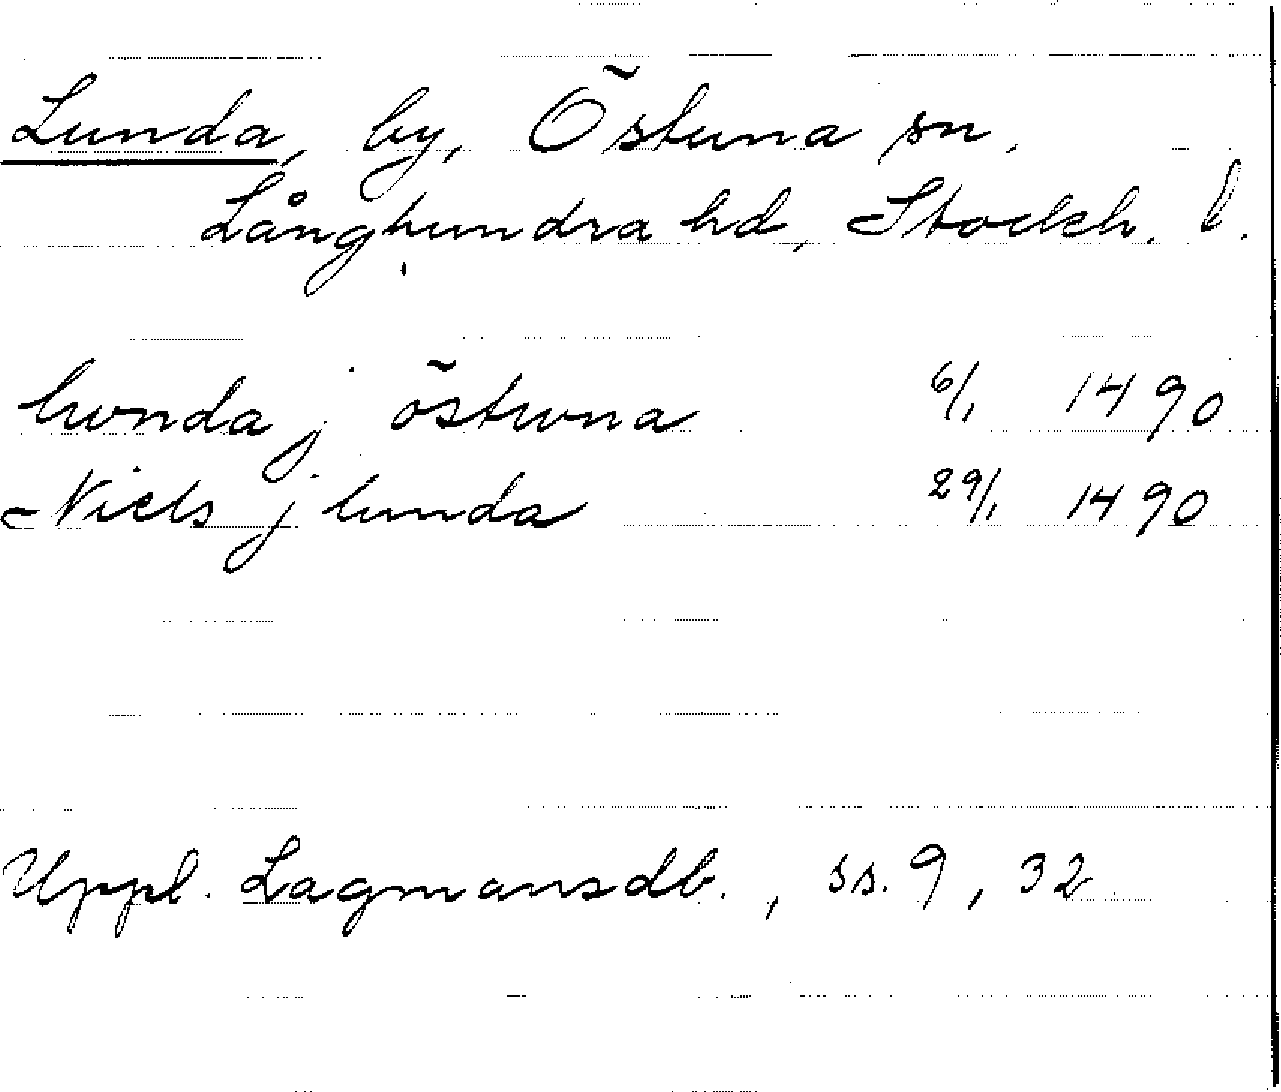 Lunda, by, Östuna sn.
Långhundra hd, Stockh. l.
lwnda j östwna 6/1 1490
Niels j lunda 29/1 1490
Uppl. Lagmansdb., ss. 9, 32